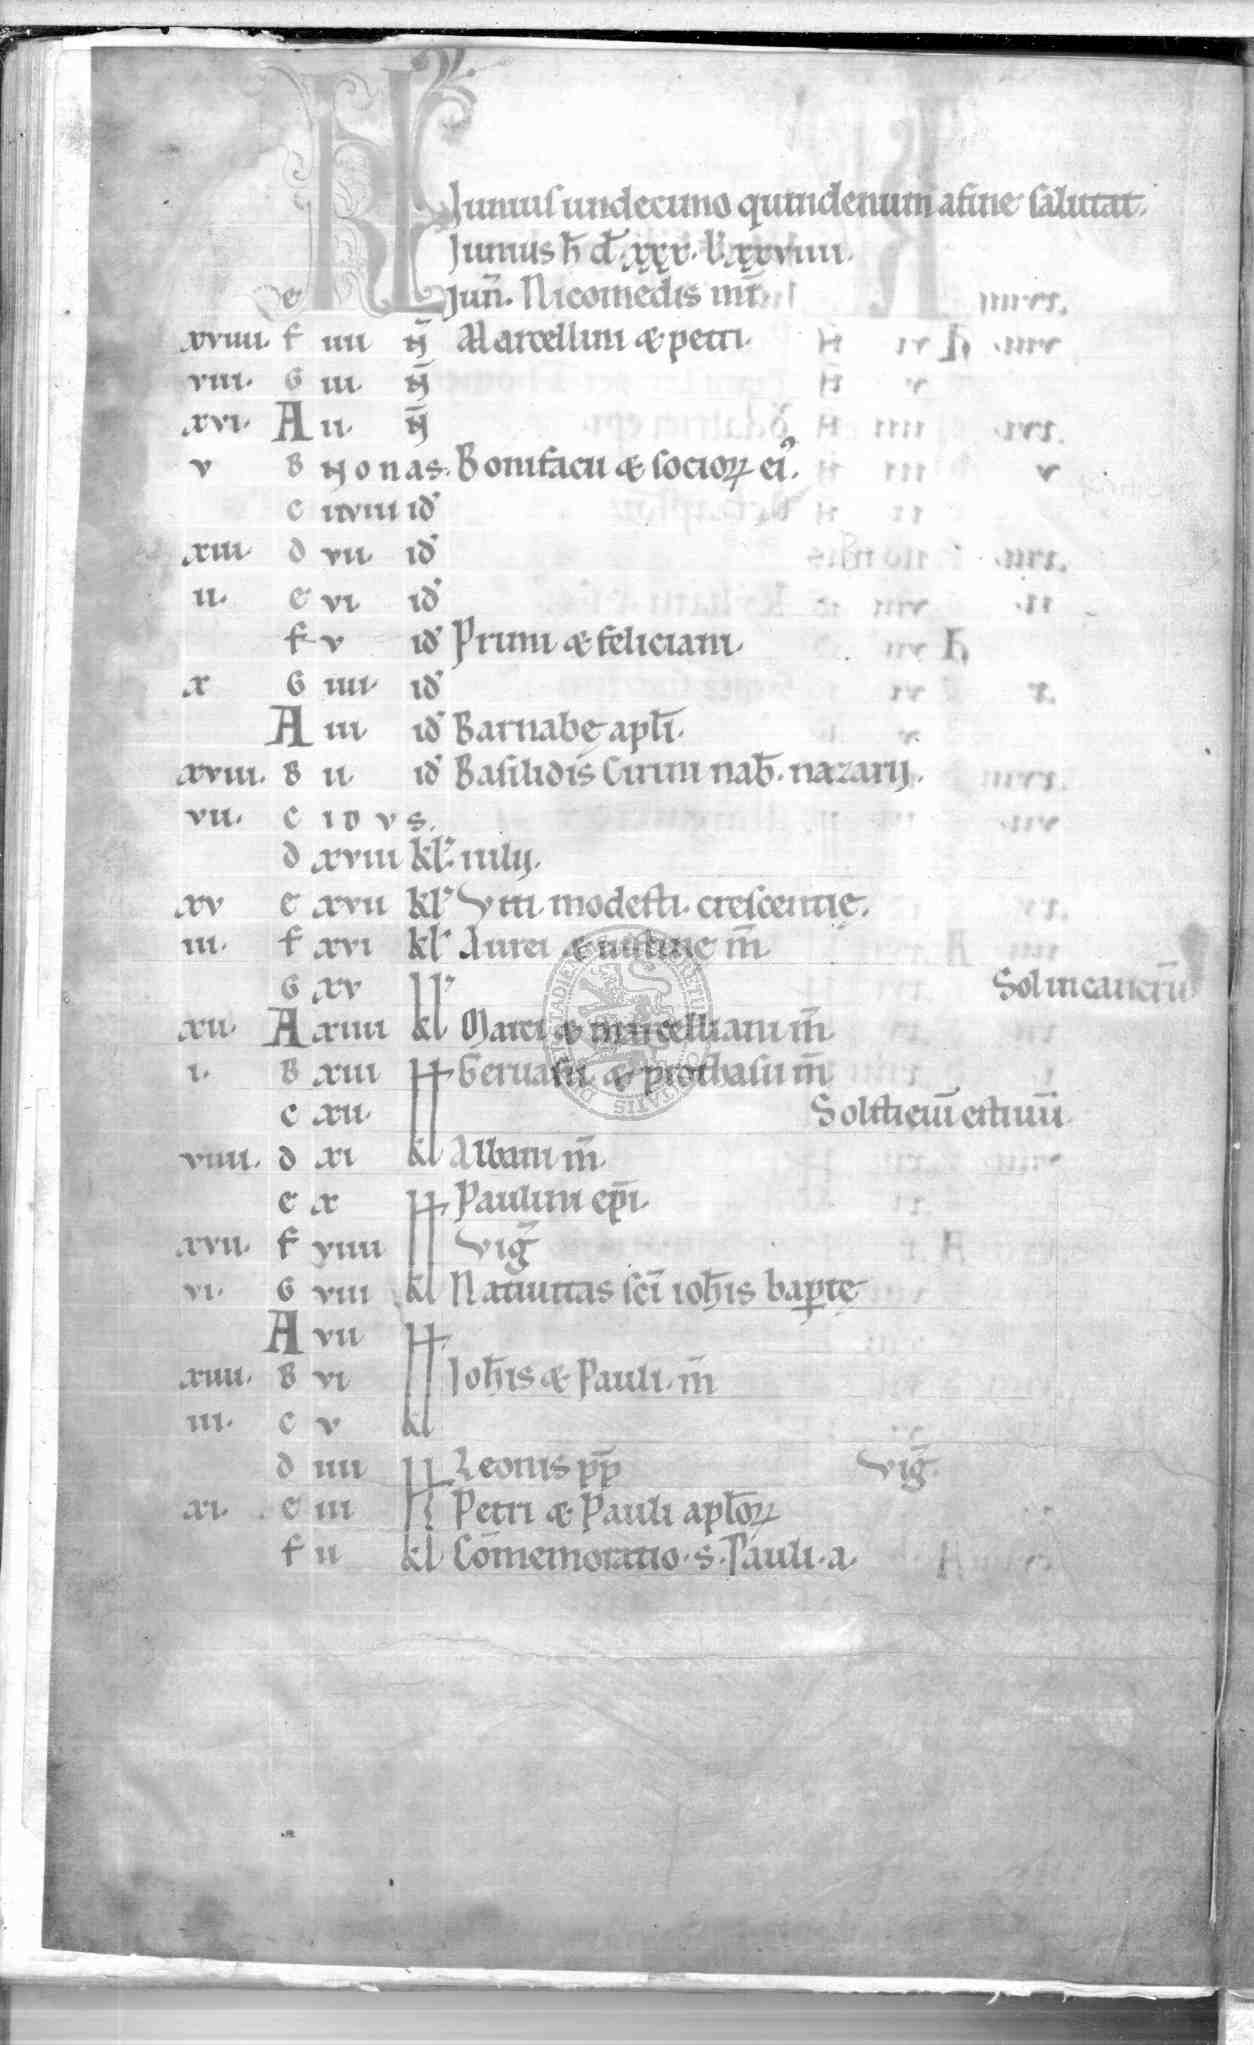 KL Junius undecimo quindenum a fine salutat.
Junius h̄ d̄. xxx. l. xxviiii.
e Jun̄. Nicomedis m̄r
xviiii. f iiii N̄ Marcellini & petri.
viii. G iii. N̄
xvi. A ii. N̄
v B Nonas. Bonifacii & socioꝝ ei᾽.
c viii id᾽
xiii d vii. id᾽
ii. e vi. id᾽
f v id᾽ Primi & feliciani.
x G iiii. id᾽
A iii id᾽ Barnabę apl̄i.
xviii. B ii id᾽ Basilidis Cirini nab̄. nazarij.
vii. c idvs.
d xviii kl᾽. iulij.
xv e xvii kl᾽ Viti. modesti. crescentię.
iii. f xvi kl᾽ Aurei & iustine m̄
G xv kl᾽ Sol in cancrū
xii. A xiiii kl Marci & marcelliani m̄
i. B xiii kl Geruasii. & prothasii m̄
c xii. kl Solsticiū estiuū
viiii. d xi kl Albani m̄.
e x kl Paulini ep̄i.
xvii. f viiii kl viḡ
vi. G viii kl Natiuitas sc̄i ioh̄is bapᵗtę
A vii kl
xiiii. B vi kl Joh̄is & Pauli. m̄
iii. c v kl
d iiii kl Leonis pp̄ viḡ.
xi. e iii kl Petri & Pauli apl̄oꝝ
f ii kl Cōmemoratio. s. Pauli. a.